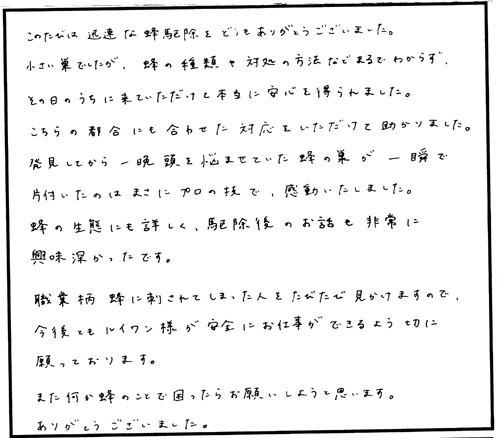 このたびは 迅速な蜂駆除をどうもありがとうございました。
小さい巣でしたが、蜂の種類や対処の方法などまるでわからず、
その日のうちに来ていただけて本当に安心を得られました。
こちらの都合にも合わせた対応をいただけて助かりました。
発見してから一晩頭を悩ませていた蜂の巣が一瞬で
片付いたのはまさにプロの技で、感動いたしました。
蜂の生態にも詳しく、駆除後のお話も非常に
興味深かったです。
職業柄 蜂に刺されてしまった人をたびたび見かけますので、
今後ともルイワン様が安全にお仕事ができるよう切に
願っております。
また何か蜂のことで困ったらお願いしようと思います。
ありがとうございました。